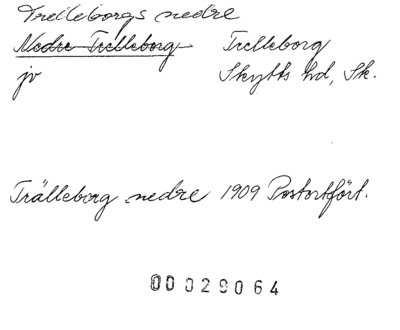 Trelleborgs nedre
Nedre Trelleborg Trelleborg
jv Skytts hd, Sk.
Trälleborg nedre 1909 Postortfört.
00029064